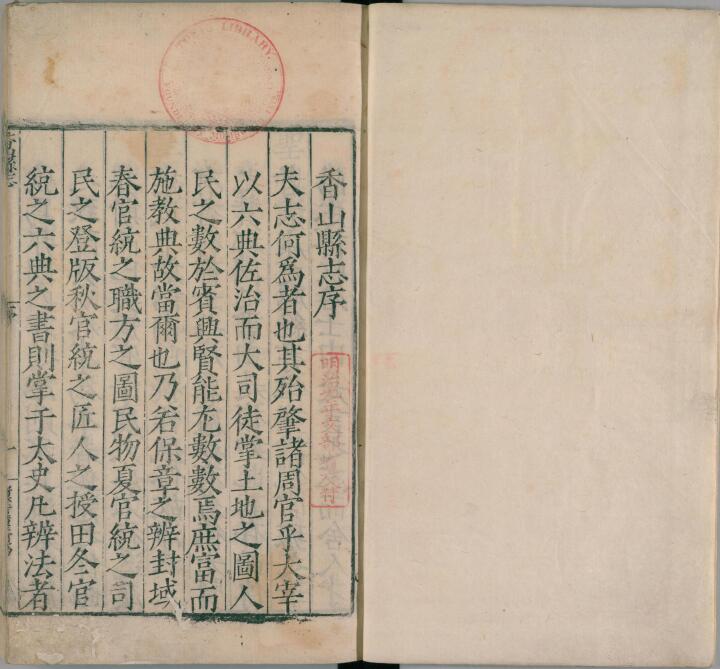 香山縣志序
夫志何爲者也其殆肇諸周官乎大宰
以六典佐治而大司徒掌土地之圖人
民之數於賓興賢能尤數數焉庶富而
施教典故當爾也乃若保章之辨封域
春官統之職方之圖民物夏官統之司
民之登版秋官統之匠人之授田冬官
統之六典之書則掌于太史凡辨法者
香山縣志
序
一
TOKIO LIBRARY
明治九年文部省交付